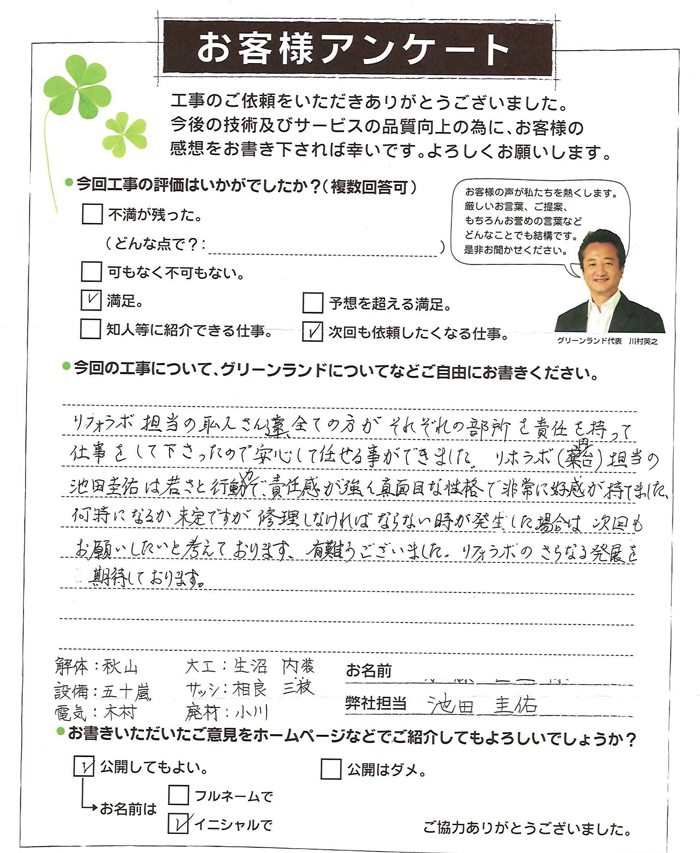 お客様アンケート
工事のご依頼をいただきありがとうございました。
今後の技術及びサービスの品質向上の為に、お客様の
感想をお書き下されば幸いです。よろしくお願いします。
今回工事の評価はいかがでしたか？（複数回答可）
不満が残った。
（どんな点で？： ）
可もなく不可もない。
満足。
予想を超える満足。
知人等に紹介できる仕事。
次回も依頼したくなる仕事。
お客様の声が私たちを熱くします。
厳しいお言葉、ご提案、
もちろんお誉めの言葉など
どんなことでも結構です。
是非お聞かせください。
グリーンランド代表 川村英之
今回の工事について、グリーンランドについてなどご自由にお書きください。
リフォラボ担当の職人さん達、全ての方がそれぞれの部所を責任を持って
仕事をして下さったので安心して任せる事ができました。リホラボ( 台)担当の
池田圭佑は若さと行動力で、責任感が強く真面目な性格で非常に好感が持てました、
何時になるか未定ですが修理しなければならない時が発生した場合は次回も
お願いしたいと考えております、有難うございました。リフォラボのさらなる発展を
期待しております。
解体：秋山 大工：生沼 内装
設備：五十嵐 サッシ：相良 三枝
電気：木村 廃材：小川
お名前
弊社担当 池田 圭佑
お書きいただいたご意見をホームページなどでご紹介してもよろしいでしょうか？
公開してもよい。
公開はダメ。
お名前は
フルネームで
イニシャルで
ご協力ありがとうございました。